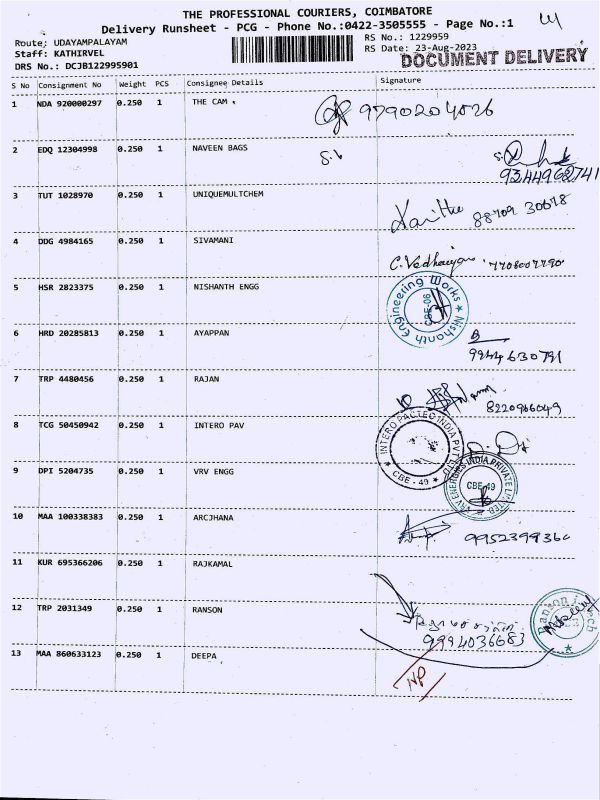 THE PROFESSIONAL COURIERS, COIMBATORE
Delivery Runsheet - PCG - Phone No.:0422-3505555 - Page No.:1
Route: UDAYAMPALAYAM
RS No.: 1229959
Staff: KATHIRVEL
RS Date: 23-Aug-2023
DOCUMENT DELIVERY
DRS No.: DCJB122995901
S No Consignment No Weight PCS Consignee Details Signature
1 NDA 920000297 0.250 1 THE CAM 9790204026
2 EDQ 12304998 0.250 1 NAVEEN BAGS
9344962741
3 TUT 1028970 0.250 1 UNIQUEMULTCHEM
88709 30678
4 DDG 4984165 0.250 1 SIVAMANI
5 HSR 2823375 0.250 1 NISHANTH ENGG
Nishanth Engineering Works
CBE-06
6 HRD 20285813 0.250 1 AYAPPAN
9944630791
7 TRP 4480456 0.250 1 RAJAN
8220966049
8 TCG 50450942 0.250 1 INTERO PAV
INTERO PACTEC INDIA PVT LTD
CBE - 49
9 DPI 5204735 0.250 1 VRV ENGG
VRV ENERGIES INDIA PRIVATE LIMITED
CBE-49
10 MAA 100338383 0.250 1 ARCJHANA
9952399360
11 KUR 695366206 0.250 1 RAJKAMAL
12 TRP 2031349 0.250 1 RANSON
9994036683
13 MAA 860633123 0.250 1 DEEPA
NP